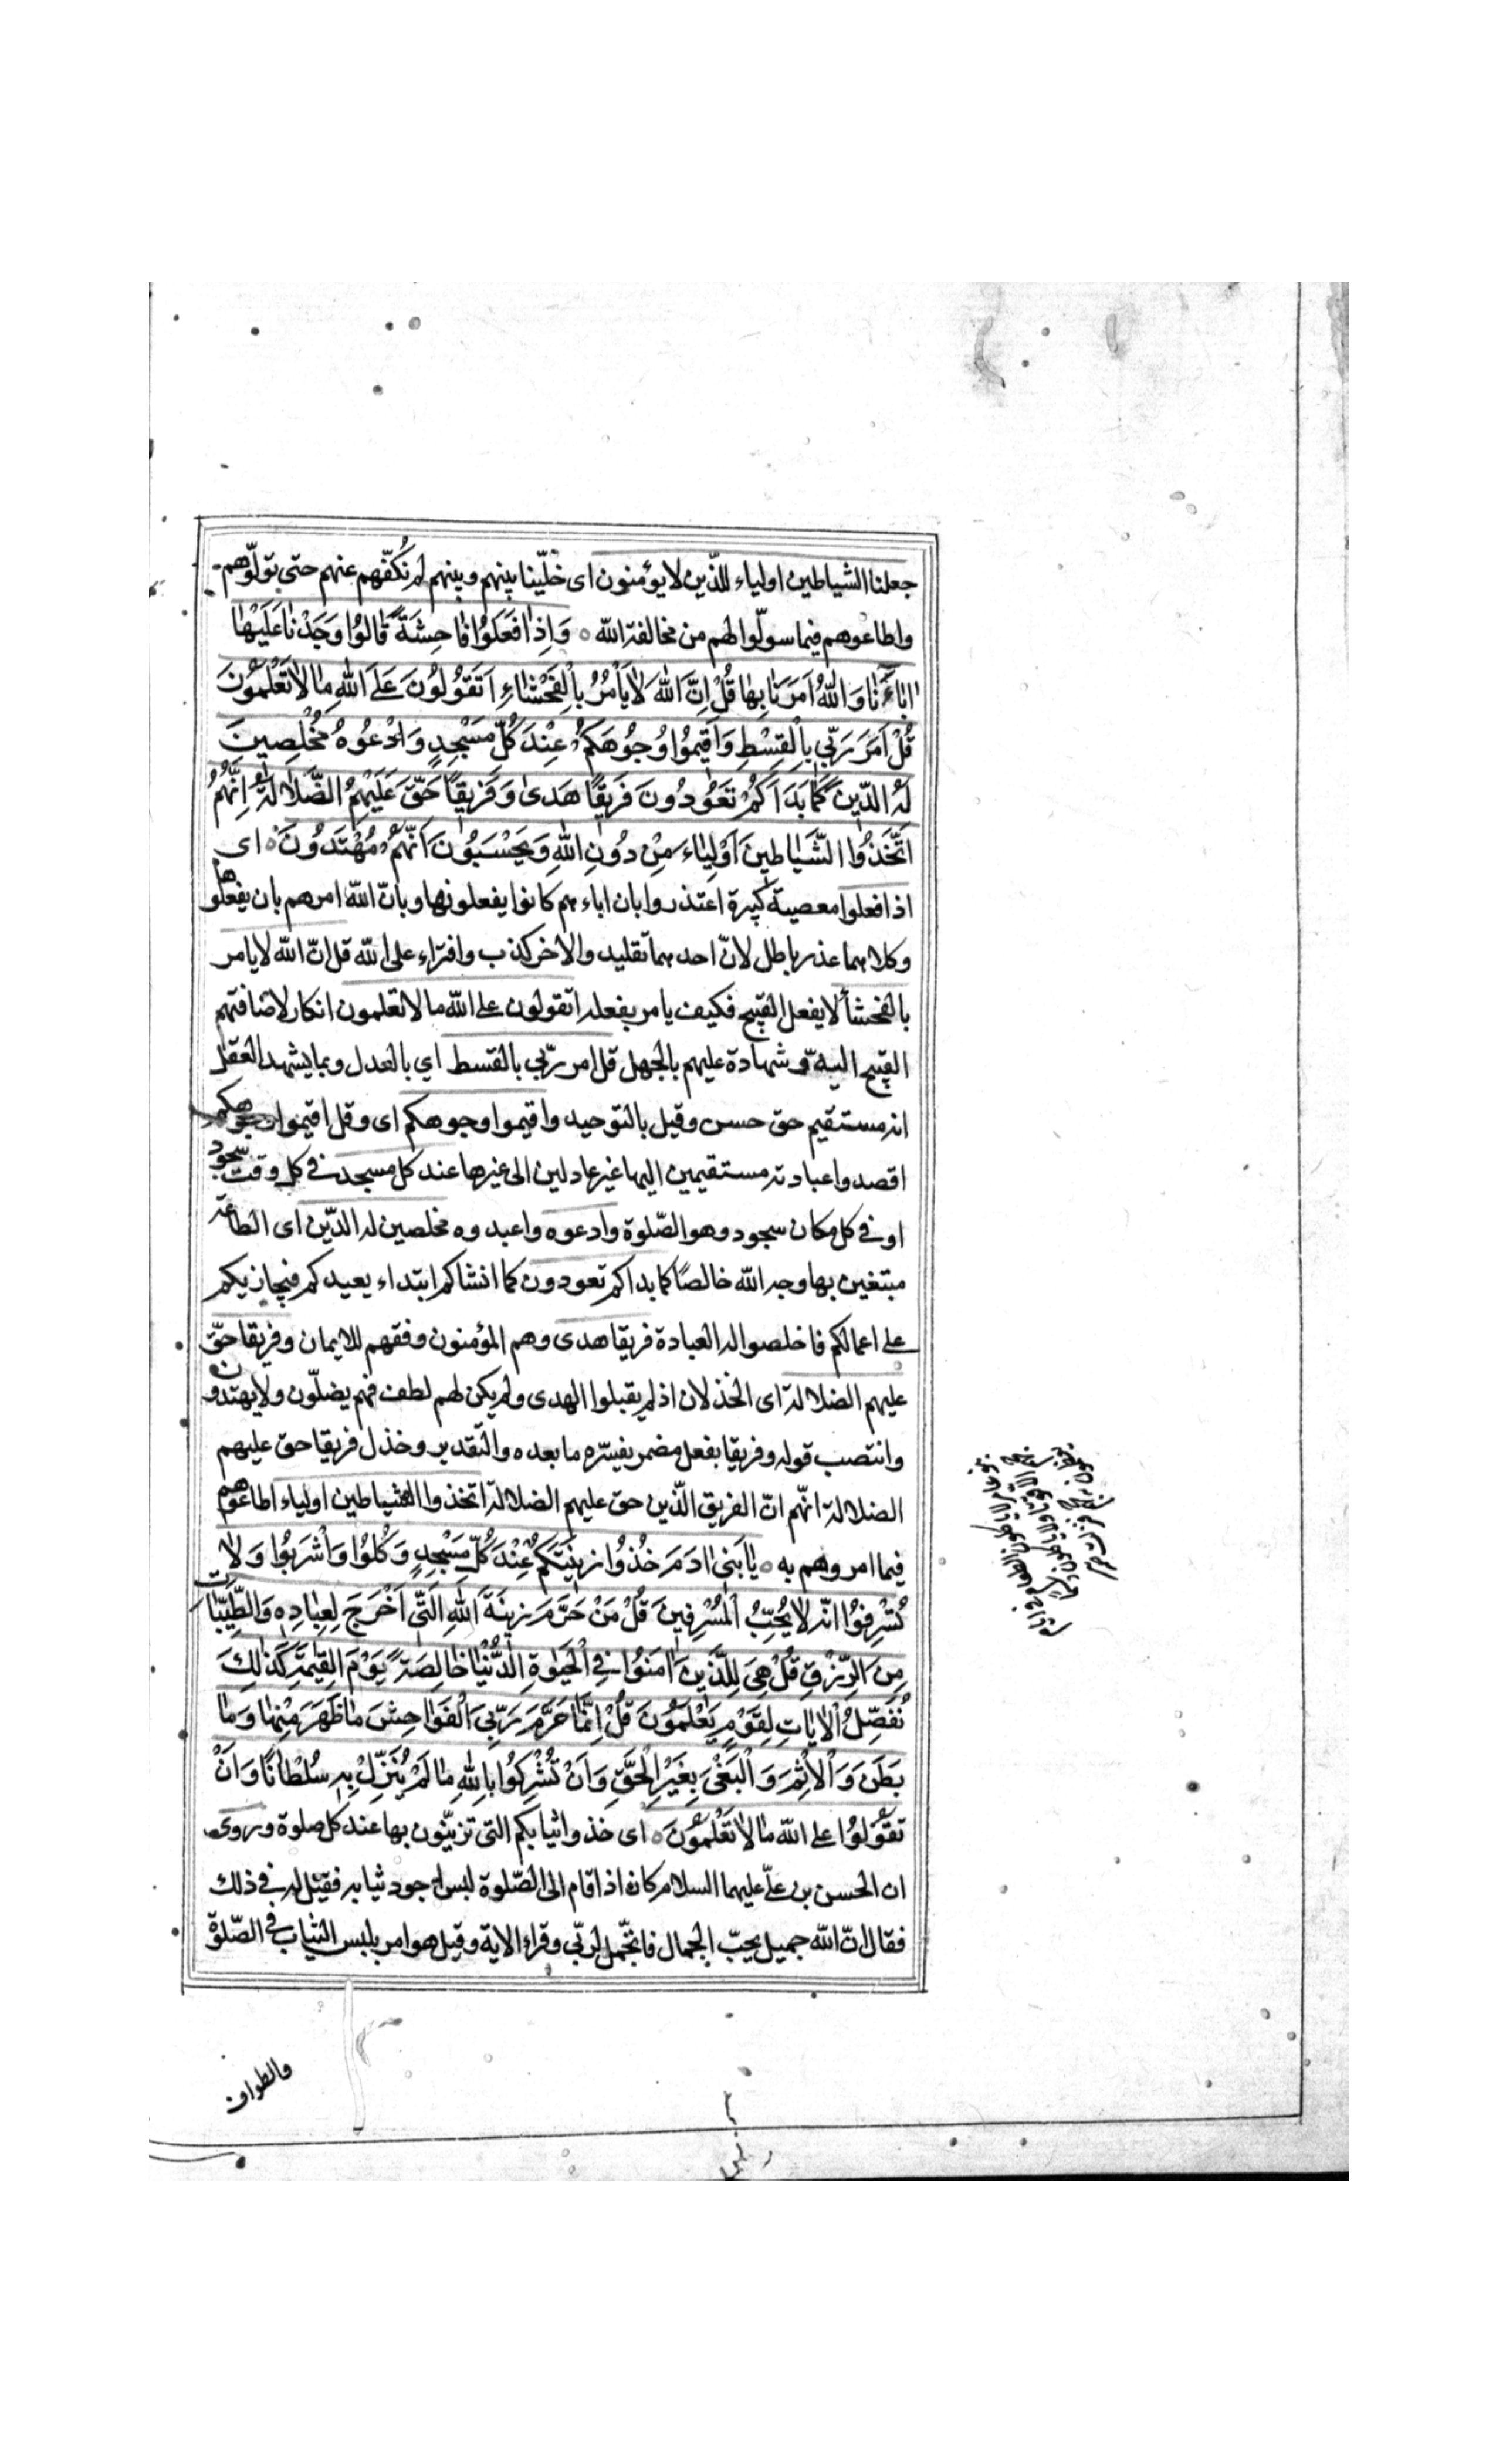 جعلنا الشياطين اولياء للّذين لا يؤمنون اى خلّينا بينهم وبينهم لم نكفّهم عنهم حتى تولّوهم
واطاعوهم فيما سولّوا لهم من مخالفة الله ٥ وَاِذٰا فَعَلُوُا فٰاحِشَةً قٰالوُا وَجَدْنٰا عَلَيْهٰا
اٰبٰاءَنٰا وَاللّٰهُ اَمَرَنٰا بِهٰا قُلْ اِنَّ اللّٰهَ لٰا يَاْمُرُ بِالْفَحْشٰاءِ اَتَقوُلُونَ عَلَى اللّٰهِ مٰا لٰا تَعْلَمُونَ
قُلْ اَمَرَ رَبّي بِالْقِسْطِ وَاَقيمُوا وُجُوهَكُمْ عِنْدَ كُلِّ مَسْجِدٍ وَادْعُوهُ مُخْلِصينَ
لَهُ الدّينَ كَمٰا بَدَاَكُمْ تَعُودُونَ فَريقًا هَدىٰ وَفَريقًا حَقَّ عَلَيْهِمُ الضَّلٰالَةُ اِنَّهُمُ
اتَّخَذُوا الشَّيٰاطينَ اَوْلِيٰاءَ مِنْ دُونِ اللّٰهِ وَيَحْسَبُونَ اَنَّهُمْ مُهْتَدُونَ ٥ اى
اذا فعلوا معصية كبيرة اعتذروا بان اباءهم كانوا يفعلونها وبانّ الله امرهم بان يفعلوها
وكلاهما عذر باطل لانّ احدهما تقليد والاخر كذب وافتراء على الله قل انّ الله لا يامر
بالفحشأ لا يفعل القبيح فكيف يامر بفعله اتقولون على الله ما لا تعلمون انكار لاضافتهم
القبيح اليه وشهادة عليهم بالجهل قل امر ربّي بالقسط اي بالعدل وبما يشهد العقل
انه مستقيم حق حسن وقيل بالتوحيد واقيموا وجوهكم اى وقل اقيموا وجوهكم
اقصدوا عبادته مستقيمين اليها غير عادلين الى غيرها عند كل مسجد في كل وقت سجود
او في كل مكان سجود وهو الصّلوة وادعوه واعبدوه مخلصين له الدّين اى الطاعة
مبتغين بها وجه الله خالصًا كما بداكم تعودون كما انشاكم ابتداء يعيدكم فيجازيكم
على اعمالكم فاخلصوا له العبادة فريقا هدى وهم المؤمنون وفقهم للايمان وفريقا حقّ
عليهم الضلالة اى الخذلان اذ لم يقبلوا الهدى ولم يكن لهم لطف فهم يضلّون ولا يهتدون
وانتصب قوله وفريقا بفعل مضمر يفسّره ما بعده والتقدير وخذل فريقا حق عليهم
الضلالة انّهم انّ الفريق الّذين حق عليهم الضلالة اتخذوا الشياطين اولياء اطاعوهم
فيما امروهم به ٥ يٰا بَنى اٰدَمَ خُذُوا زينَتَكُمْ عِنْدَ كُلِّ مَسْجِدٍ وَكُلُوا وَاشْرَبُوا وَلٰا
تُسْرِفُوا انّه لا يُحِبُّ الْمُسْرِفينَ قُلْ مَنْ حَرَّمَ زينَةَ اللّٰهِ الَّتي اَخْرَجَ لِعِبٰادِه وَالطَّيِّبٰاتِ
مِنَ الرِّزْقِ قُلْ هِيَ لِلَّذينَ اٰمَنُوا فِي الْحَيٰوةِ الدُّنْيٰا خٰالِصَةً يَوْمَ الْقِيٰمَةِ كَذٰلِكَ
نُفَصِّلُ الْاٰيٰاتِ لِقَوْمٍ يَعْلَمُونَ قُلْ اِنَّمٰا حَرَّمَ رَبِّيَ الْفَوٰاحِشَ مٰا ظَهَرَ مِنْهٰا وَمٰا
بَطَنَ وَالْاِثْمَ وَالْبَغْىَ بِغَيْرِ الْحَقِّ وَاَنْ تُشْرِكُوا بِاللّٰهِ مٰا لَمْ يُنَزِّلْ بِه سُلْطٰانًا وَاَنْ
تَقُولُوا على الله مٰا لٰا تَعْلَمُونَ ٥ اى خذوا ثيابكم التى تزيّنون بها عند كل صلوة وروى
ان الحسن بن علىّ عليهما السلام كان اذا قام الى الصّلوة لبس اجود ثيابه فقيل له في ذلك
فقال انّ الله جميل يحبّ الجمال فاتجّمل لربّي وقراء الاية وقيل هو امر بلبس الثياب في الصّلوة
والطواف